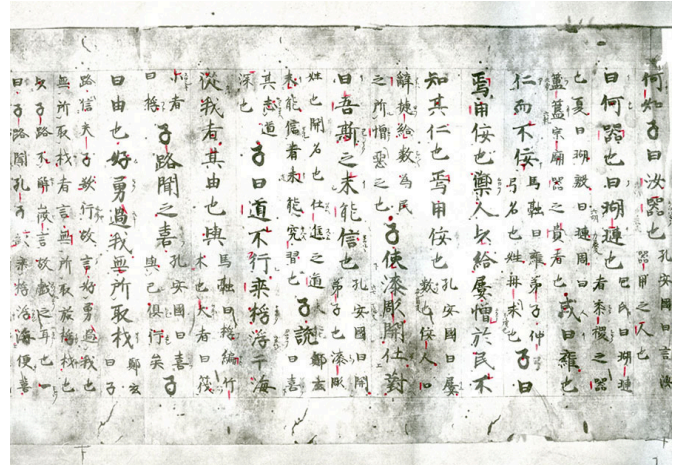 何如子曰汝器也
孔安國曰言汝
器用之人也
曰何器也曰瑚璉也
苞氏曰瑚璉
者黍稷之器
也夏曰瑚殷曰璉周曰
簠簋宗廟器之貴者也
或曰雍也
仁而不佞
馬融曰雍弟子仲
弓名也姓冉
子曰
焉用佞也禦人以給屢憎於民不
知其仁也焉用佞也
孔安國曰屢
數也佞人口
辭捷給數為民
之所憎惡之也
子使漆彫開仕對
曰吾斯之未能信也
孔安國曰開
弟子也漆彫
姓也開名也仕進之道
未能信者未能究習也
子說
鄭玄
曰喜
其志道
深也
子曰道不行乘桴浮于海
從我者其由也與
馬融曰桴編竹
木也大者曰筏
小者
曰桴
子路聞之喜
孔安國曰喜
與己俱行矣
子
曰由也好勇過我無所取材
鄭玄
曰子
路信夫子欲行故言好勇過我也
無所取材者言無所取桴材也
以子路不解微言故戲之耳也一
曰子路聞孔子乘桴浮海便喜